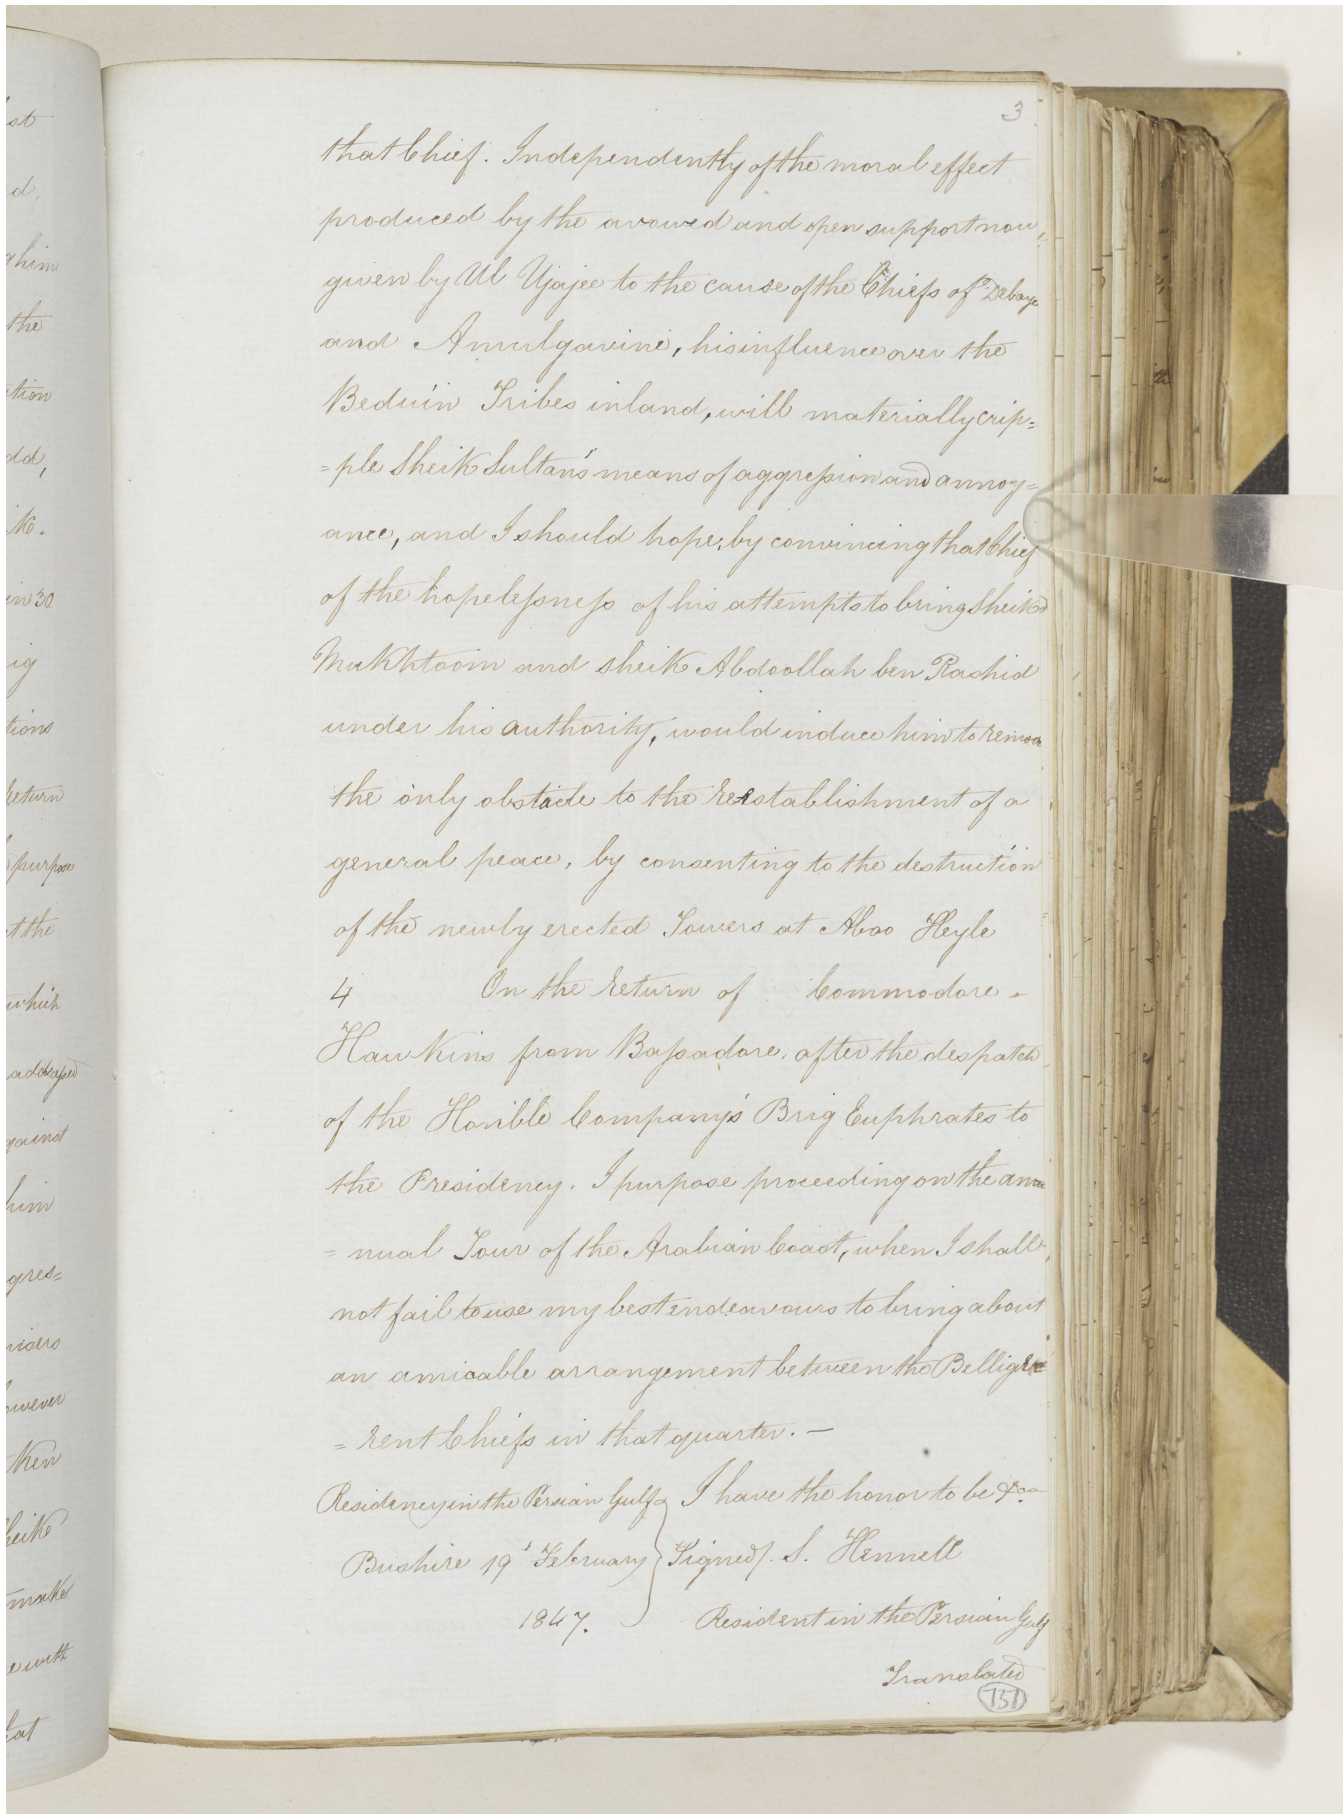 st
d,
him
the
ction
dd,
ik.
in 30
ig
tions
return
purpose
t the
which
addressed
gainst
him
gres=
visers
owever
ken
heik
make
e with
hat
3
that Chief. Independently of the moral effect
produced by the avowed and open support now
given by Ul Ujajee to the cause of the Chiefs of Debaye
and Amulgavine, his influence over the
Beduin Tribes inland, will materially crip=
=ple Sheik Sultan's means of aggression and annoy=
ance, and I should hope, by convincing that Chief
of the hopelessness of his attempts to bring Sheik
Mukhtoom and sheik Abdoollah ben Rashid
under his authority, would induce him to remove
the only obstacle to the reestablishment of a
general peace, by consenting to the destruction
of the newly erected Towers at Aboo Heyle
4 On the return of Commodore -
Hawkins from Bassadore, after the despatch
of the Hon'ble Company's Brig Euphrates to
the Presidency. I purpose proceeding on the an
=nual Tour of the Arabian Coast, when I shall
not fail to use my best endeavours to bring about
an amicable arrangement between the Bellige
=rent Chiefs in that quarter. —
Residency in the Persian Gulf } I have the honor to be &ca
Bushire 19 February } Signed/. S. Hennell
1847. Resident in the Persian Gulf
Translated
151